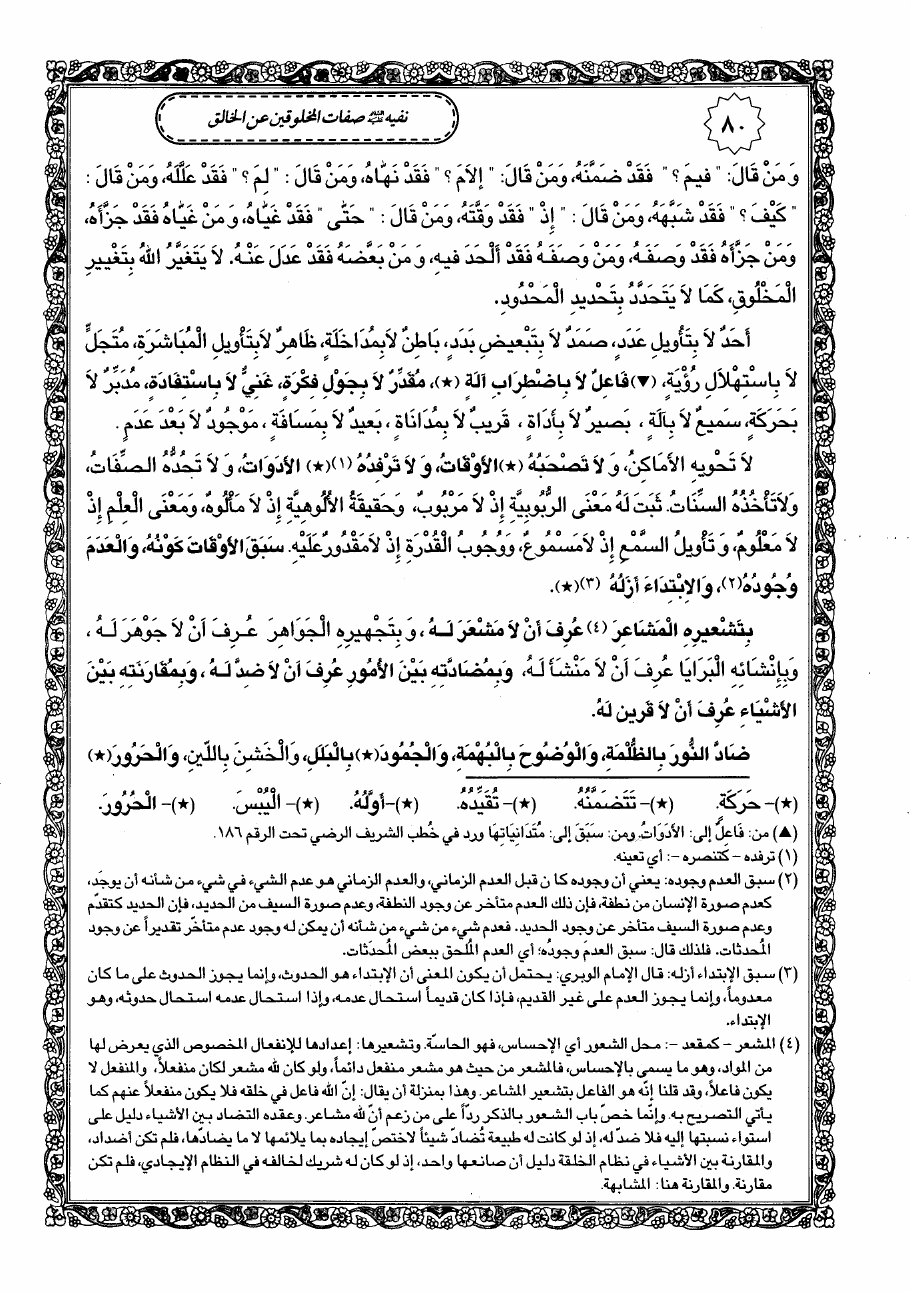 ٨٠
نفيه عليه السلام صفات المخلوقين عن الخالق
وَ مَنْ قَالَ: " فيمَ ؟ " فَقَدْ ضَمَّنَهُ، وَمَنْ قَالَ: " إِلاَمَ ؟ " فَقَدْ نَهَّاهُ، وَمَنْ قَالَ : " لِمَ ؟ " فَقَدْ عَلَّلَهُ، وَمَنْ قَالَ :
" كَيْفَ ؟ " فَقَدْ شَبَّهَهُ، وَمَنْ قَالَ : " إِذْ " فَقَدْ وَقَّتَهُ، وَمَنْ قَالَ : " حَتّى " فَقَدْ غَيَّاهُ، وَ مَنْ غَيَّاهُ فَقَدْ جَزَّأَهُ،
وَمَنْ جَزَّأَهُ فَقَدْ وَصَفَهُ، وَمَنْ وَصَفَهُ فَقَدْ أَلْحَدَ فيهِ، وَ مَنْ بَعَّضَهُ فَقَدْ عَدَلَ عَنْهُ. لاَ يَتَغَيَّرُ اللهُ بِتَغْييرِ
الْمَخْلُوقِ، كَمَا لاَ يَتَحَدَّدُ بِتَحْديدِ الْمَحْدُودِ.
أَحَدٌ لاَ بِتَأْويلِ عَدَدٍ، صَمَدٌ لاَ بِتَبْعيضِ بَدَدٍ، بَاطِنٌ لاَبِمُدَاخَلَةٍ، ظَاهِرٌ لاَبِتَأْويلِ الْمُبَاشَرَةِ، مُتَجَلٍّ
لاَ بِاسْتِهْلاَلِ رُؤْيَةٍ، (▼) فَاعِلٌ لاَ بِاضْطِرَابِ آلَةٍ (★)، مُقَدِّرٌ لاَ بِجَوْلِ فِكْرَةٍ، غَنِيٌّ لاَ بِاسْتِفَادَةٍ، مُدَبِّرٌ لاَ
بَحَرَكَةٍ، سَميعٌ لاَ بِآلَةٍ ، بَصيرٌ لاَ بِأَدَاةٍ ، قَريبٌ لاَ بِمُدَانَاةٍ ، بَعيدٌ لاَ بِمَسَافَةٍ ، مَوْجُودٌ لاَ بَعْدَ عَدَمٍ .
لاَ تَحْويهِ الأَمَاكِنُ، وَ لاَ تَصْحَبُهُ (★) الأَوْقَاتُ، وَ لاَ تَرْفِدُهُ (١)(★) الأَدَوَاتُ، وَ لاَ تَحُدُّهُ الصِّفَاتُ،
وَلاَتَأْخُذُهُ السِّنَاتُ. ثَبَتَ لَهُ مَعْنَى الرُّبُوبِيَّةِ إِذْ لاَ مَرْبُوبَ، وَحَقيقَةُ الأُلُوهِيَّةِ إِذْ لاَ مَأْلُوهَ، وَمَعْنَى الْعِلْمِ إِذْ
لاَ مَعْلُومَ، وَ تَأْويلُ السَّمْعِ إِذْ لاَمَسْمُوعَ، وَوُجُوبُ الْقُدْرَةِ إِذْ لاَمَقْدُورَعَلَيْهِ. سَبَقَ الأَوْقَاتَ كَوْنُهُ، وَالْعَدَمَ
وُجُودُهُ (٢)، وَ الاِبْتِدَاءَ أَزَلُهُ (٣)(★).
بِتَشْعيرِهِ الْمَشَاعِرَ (٤) عُرِفَ أَنْ لاَ مَشْعَرَ لَهُ ، وَ بِتَجْهيرِهِ الْجَوَاهِرَ عُرِفَ أَنْ لاَ جَوْهَرَ لَهُ ،
وَبِإِنْشَائِهِ الْبَرَايَا عُرِفَ أَنْ لاَ مَنْشَأَ لَهُ، وَبِمُضَادَّتِهِ بَيْنَ الأُمُورِ عُرِفَ أَنْ لاَ ضِدَّ لَهُ ، وَبِمُقَارَنَتِهِ بَيْنَ
الأَشْيَاءِ عُرِفَ أَنْ لاَ قَرينَ لَهُ.
ضَادَّ النُّورَ بِالظُّلْمَةِ، وَالْوُضُوحَ بِالْبُهْمَةِ، وَالْجُمُودَ (★) بِالْبَلَلِ، وَالْخَشْنَ بِاللّينِ، وَالْحَرُورَ (★)
(★)- حَرَكَةٍ. (★)- تَتَضَمَّنُهُ. (★)- تُقَيِّدُهُ. (★)- أَوَّلُهُ. (★)- الْيُبْسَ. (★)- الْحُرُورَ.
(▲) من: فَاعِلٌ إلى: الأَدَوَاتُ. ومن: سَبَقَ إلى: مُتَدَانِيَاتِهَا ورد في خُطب الشريف الرضي تحت الرقم ١٨٦.
(١) ترفده – كتنصره –: أي تعينه.
(٢) سبق العدم وجوده: يعني أن وجوده كا ن قبل العدم الزماني، والعدم الزماني هو عدم الشيء في شيء من شأنه أن يوجَد،
كعدم صورة الإنسان من نطفة، فإن ذلك العدم متأخر عن وجود النطفة، وعدم صورة السيف من الحديد، فإن الحديد كتقدّم
وعدم صورة السيف متأخر عن وجود الحديد. فعدم شيء من شيء من شأنه أن يمكن له وجود عدم متأخّر تقديراً عن وجود
المُحدثات. فلذلك قال: سبق العدمَ وجودُه؛ أي العدم المُلحق ببعض المُحدَثات.
(٣) سبق الإبتداء أزله: قال الإمام الوبري: يحتمل أن يكون المعنى أن الإبتداء هو الحدوث، وإنما يجوز الحدوث على ما كان
معدوماً، وإنما يجوز العدم على غير القديم، فإذا كان قديماً استحال عدمه، وإذا استحال عدمه استحال حدوثه، وهو
الإبتداء.
(٤) المشعر – كمقعد –: محل الشعور أي الإحساس، فهو الحاسّة. وتشعيرها: إعدادها للإنفعال المخصوص الذي يعرض لها
من المواد، وهو ما يسمى بالإحساس، فالمشعر من حيث هو مشعر منفعل دائماً، ولو كان لله مشعر لكان منفعلاً، والمنفعل لا
يكون فاعلاً، وقد قلنا إنّه هو الفاعل بتشعير المشاعر. وهذا بمنزلة أن يقال: إنّ الله فاعل في خلقه فلا يكون منفعلاً عنهم كما
يأتي التصريح به. وإنّما خصّ باب الشعور بالذكر ردّاً على من زعم أنّ لله مشاعر. وعقده التضاد بين الأشياء دليل على
استواء نسبتها إليه فلا ضدّ له، إذ لو كانت له طبيعة تُضادّ شيئاً لاختصّ إيجاده بما يلائمها لا ما يضادّها، فلم تكن أضداد،
والمقارنة بين الأشياء في نظام الخلقة دليل أن صانعها واحد، إذ لو كان له شريك لخالفه في النظام الإيجادي، فلم تكن
مقارنة. والمقارنة هنا: المشابهة.